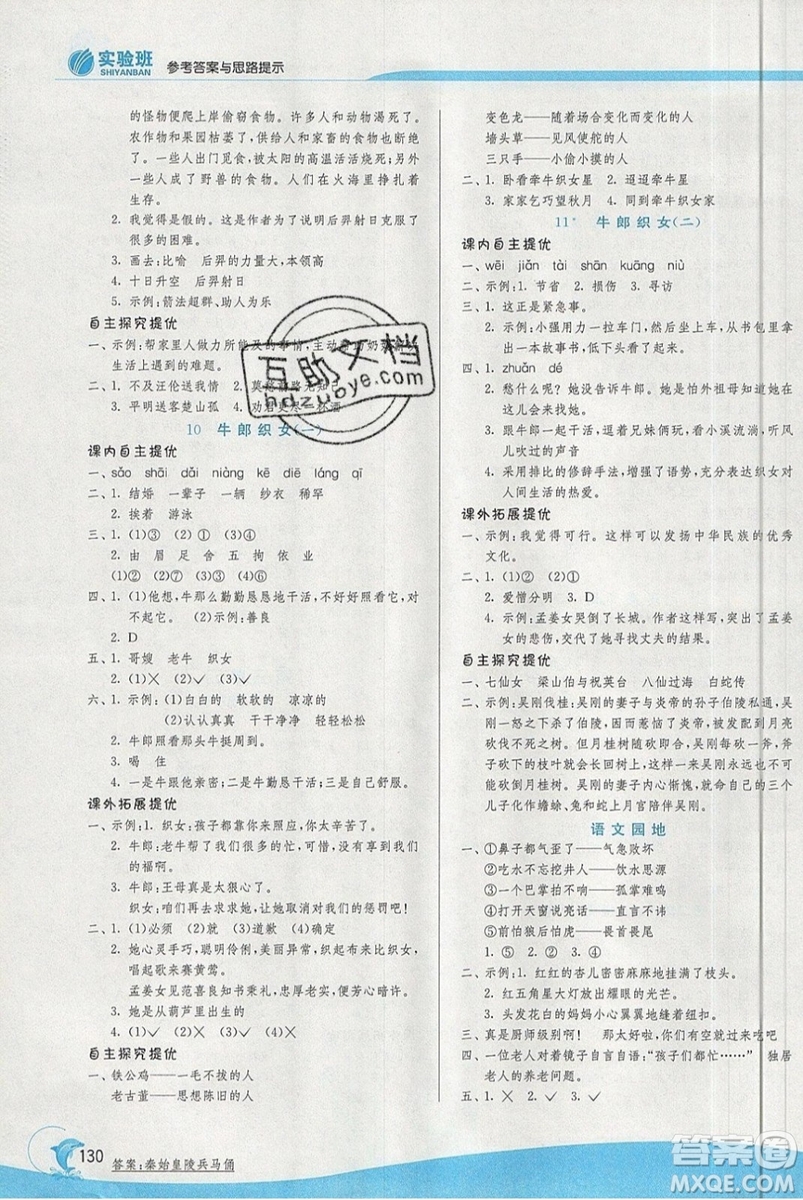 实验班
SHIYANBAN
参考答案与思路提示
的怪物便爬上岸偷窃食物。许多人和动物渴死了。
农作物和果园枯萎了，供给人和家畜的食物也断绝
了。一些人出门见食，被太阳的高温活活烧死；另外
一些人成了野兽的食物。人们在火海里挣扎着
生存。
2. 我觉得是假的。这是作者为了说明后羿射日克服了
很多的困难。
3. 画去：比喻 后羿的力量大，本领高
4. 十日升空 后羿射日
5. 示例：箭法超群、助人为乐
自主探究提优
一、示例：帮家里人做力所能及的事情，主动
生活上遇到的难题。
二、1. 不及汪伦送我情 2. 莫愁前路无知己
3. 平明送客楚山孤 4. 劝君更尽一杯酒
10 牛郎织女（一）
课内自主提优
一、sǎo shāi dǎi niàng kē diē láng qī
二、1. 结婚 一辈子 一辆 纱衣 稀罕
2. 挨着 游泳
三、1. (1)③ (2)① (3)② (4)①
2. 由 眉 足 舍 五 拘 依 业
(1)② (2)⑦ (3)⑤ (4)⑥
四、1. (1)他想，牛那么勤勤恳恳地干活，不好好照看它，对
不起它。 (2)示例：善良
2. D
五、1. 哥嫂 老牛 织女
2. (1)× (2)✓ (3)✓
六、1. 示例：(1)白白的 软软的 凉凉的
(2)认认真真 干干净净 轻轻松松
2. 牛郎照看那头牛挺周到。
3. 喝 住
4. 一是牛跟他亲密；二是牛勤力干活；三是自己舒服。
课外拓展提优
一、示例：1. 织女：孩子都靠你来照应，你太辛苦了。
2. 牛郎：老牛帮了我们很大的忙，它牺牲了自己换来我们
的福啊。
3. 牛郎：王母真是太狠心了。
织女：咱们再去求求她，让她取消对我们的惩罚吧！
二、1. (1)立即 (2)就 (3)道歉 (4)确定
2. 她心灵手巧，聪明伶俐，美丽非常，织起布来比织女，
唱起歌来赛黄莺。
孟姜女见范喜良知书达礼，忠厚老实，便芳心暗许。
3. 她是从葫芦里出生的
4. (1)✓ (2)× (3)✓ (4)×
自主探究提优
一、铁公鸡——一毛不拔的人
老古董——思想陈旧的人
变色龙——随着场合变化而变化的人
墙头草——见风使舵的人
三只手——小偷小摸的人
二、1. 卧看牵牛织女星 2. 迢迢牵牛星
3. 家家乞巧望秋月 4. 同到牵牛织女家
11* 牛郎织女（二）
课内自主提优
一、wēi jiǎn tài shān kuāng niù
二、示例：1. 节省 2. 损伤 3. 寻访
三、1. 这正是紧急事。
2. 示例：小强用力一拉车门，然后坐上车，从书包里拿出
一本故事书，低下头看了起来。
四、1. zhuǎn dé
2. 愁什么呢？她没告诉牛郎。她是怕外祖母知道她在
人间生活。
3. 跟牛郎一起干活，逗着兄妹俩玩，看小溪流淌，听虫儿
吹过的声音
4. 采用排比的修辞手法，增强了语势，充分表达织女对
人间生活的热爱。
课外拓展提优
一、示例：我觉得可行。因为这样可以发扬中华民族的优秀
文化。
二、1. (1)② (2)①
2. 爱憎分明 3. D
4. 示例：孟姜女哭倒了长城。作者这样写，突出了孟姜
女的悲伤，交代了她寻找丈夫的结果。
自主探究提优
一、七仙女 梁山伯与祝英台 八仙过海 白蛇传
二、示例：吴刚伐桂：吴刚的妻子与炎帝的孙子伯陵私通，吴
刚一怒之下杀了伯陵，因此惹怒了炎帝，被发配到月亮
砍伐不死之树。但月桂树随砍即合，炎帝每砍一斧，斧
子砍下的枝叶就会长回树上，经过多长时间仍然没能
砍掉月桂树。吴刚的妻子内心惭愧，就命她的三个
儿子化作蟾蜍、兔和蛇上月宫陪伴吴刚。
语文园地
一、①鼻子都气歪了——气急败坏
②吃水不忘挖井人——饮水思源
③一个巴掌拍不响——孤掌难鸣
④打开天窗说亮话——直言不讳
⑤前怕狼后怕虎——畏首畏尾
1. ⑤ 2. ② 3. ④
二、示例：1. 红红的杏儿密密麻麻地挂上了枝头。
2. 红五角星大灯放出耀眼的光芒。
3. 头发花白的妈妈小心翼翼地缝着纽扣。
三、真是厨师级别啊！ 那太好啦，你们来吃吧
四、一位老人对着镜子自言自语：“孩子们都忙……” 独居
老人的养老问题。
五、1. × 2. ✓ 3. ✓ 4. ✓
130
答案：秦始皇陵兵马俑
互助文档
hdzuoye.com
答案圈
MXQE.COM